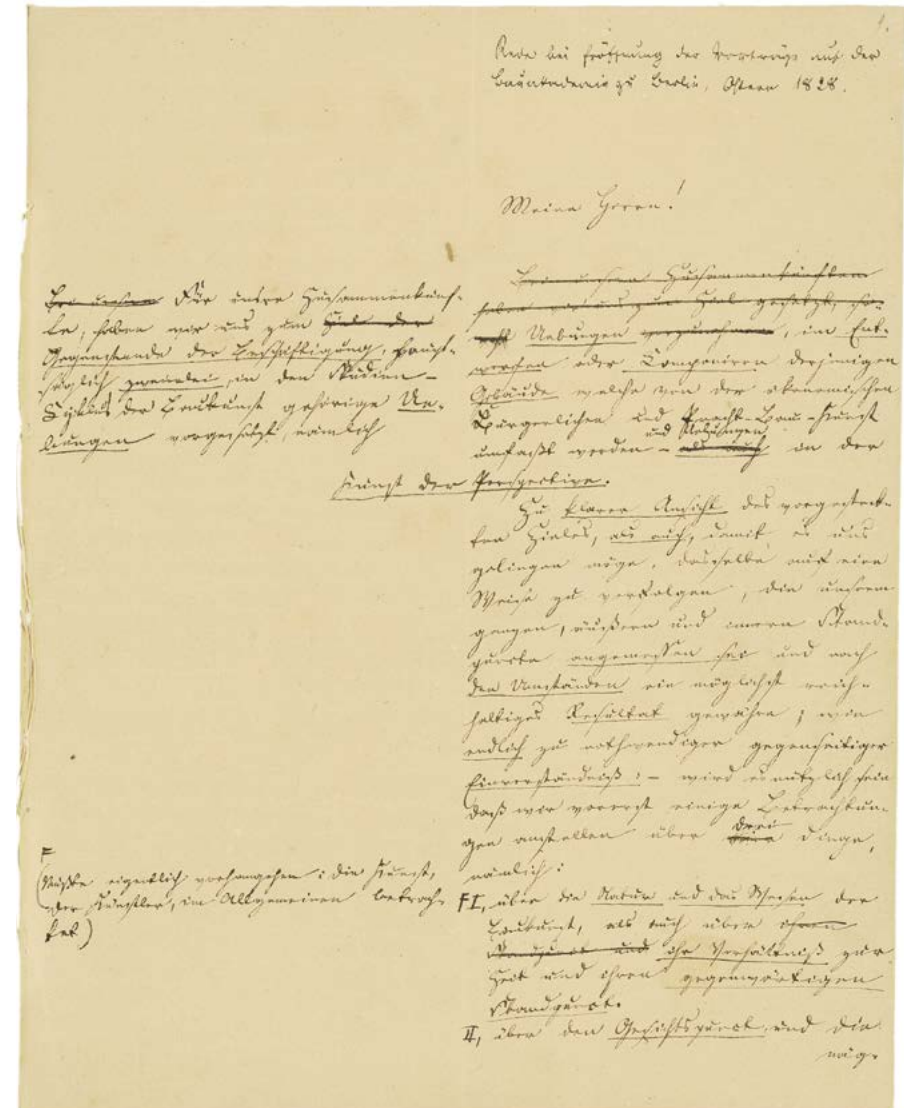 1.
Rede bei Eröffnung der Vorträge auf der
Bauakademie zu Berlin, Ostern 1828.
Meine Herren!
Bei unsern Für unsre Zusammenkünf-
te, haben wir uns zum Ziel der
Gegenstande der Beschäftigung, haupt-
sächlich zweierlei, in den Studien-
Zyklus der Baukunst gehörige Ue-
bungen vorgesetzt, nämlich
Bei unsern Zusammenkünften
haben wir uns zum Ziel gesetzt, so-
wohl Uebungen vorzunehmen, im Ent-
werfen oder Componiren derjenigen
Gebäude welche von der ökonomischen
Bürgerlichen und Pracht-Bau-Kunst
und Uebungen
umfaßt werden – als auch in der
Kunst der Perspective.
Zu klarer Ansicht des vorgesteck-
ten Zieles, als auch, damit es uns
gelingen möge, dasselbe auf eine
Weise zu verfolgen, die unserm
ganzen, äußern und innern Stand-
puncte angemessen sei und nach
den Umständen ein möglichst reich-
haltiges Resultat gewähre; wie
endlich zu nothwendiger gegenseitiger
Einverständniß: – wird es nützlich sein
daß wir vorerst einige Betrachtun-
drei
gen anstellen über Dinge,
nämlich:
F
(Müßte eigentlich vorhangehen: die Kunst,
der Künstler, im Allgemeinen betrach-
tet.)
F I, über die Natur und das Wesen der
Baukunst, als auch über ihren
Standpunct und ihr Verhältniß zur
Zeit und ihren gegenwärtigen
Standpunct.
II, über den Gesichtspunct und die
mög-